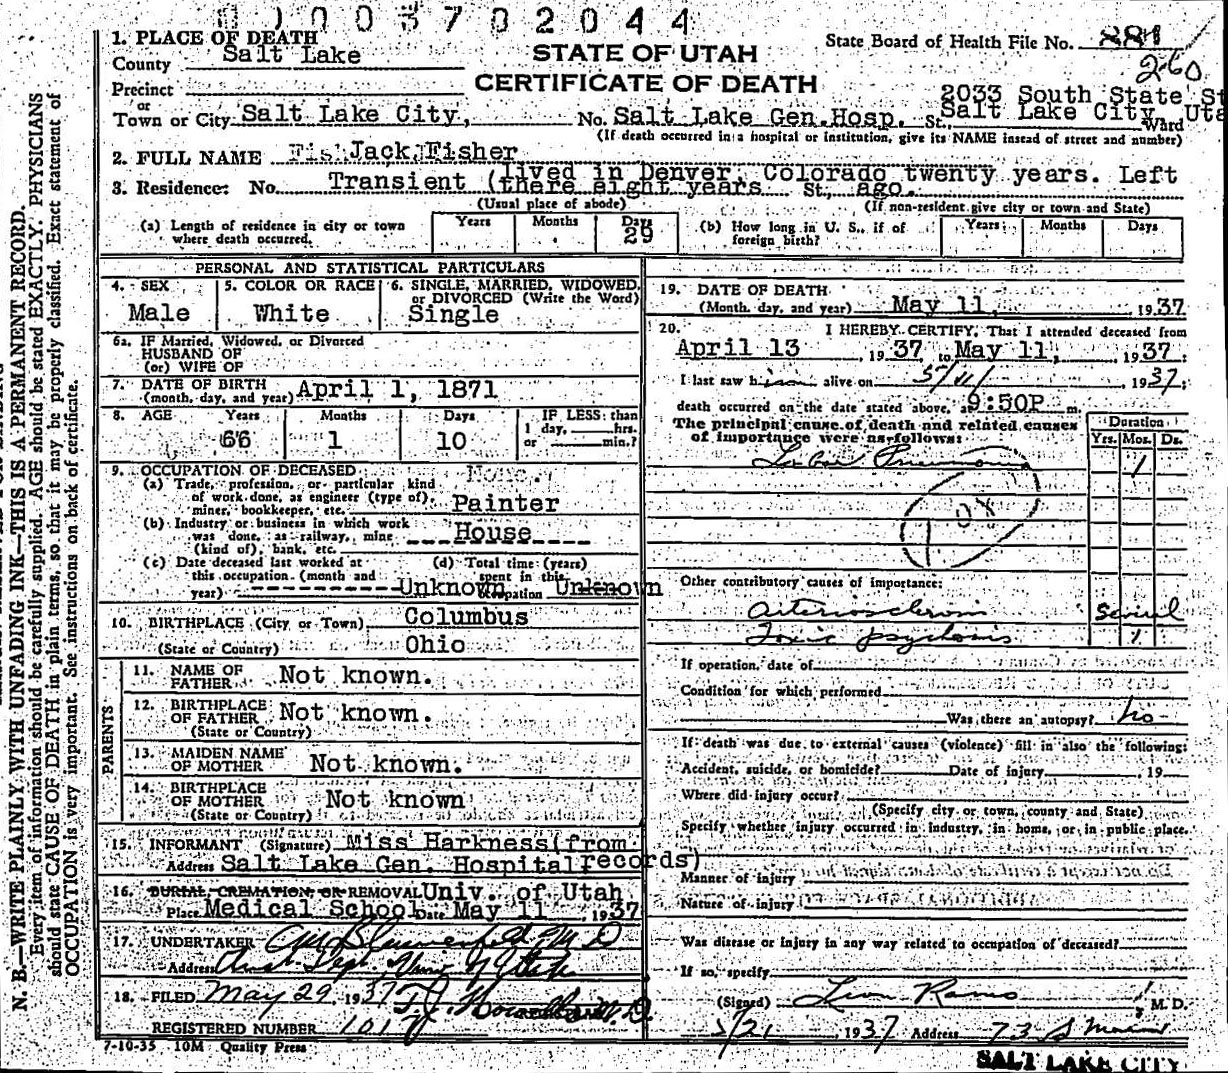 003702044
1. PLACE OF DEATH
County Salt Lake
STATE OF UTAH
CERTIFICATE OF DEATH
State Board of Health File No. 881
260
Precinct
or
Town or City Salt Lake City, No. Salt Lake Gen. Hosp. St. Ward
2033 South State St
Salt Lake City, Uta
(If death occurred in a hospital or institution, give its NAME instead of street and number)
2. FULL NAME Fis Jack Fisher
3. Residence: No. Transient (lived in Denver, Colorado twenty years. Left
there eight years St., ago.
(Usual place of abode) (If non-resident give city or town and State)
(a) Length of residence in city or town
where death occurred.
Years Months Days
29
(b) How long in U. S., if of
foreign birth?
Years Months Days
PERSONAL AND STATISTICAL PARTICULARS
4. SEX
Male
5. COLOR OR RACE
White
6. SINGLE, MARRIED, WIDOWED,
or DIVORCED (Write the Word)
Single
6a. IF Married, Widowed, or Divorced
HUSBAND OF
(or) WIFE OF
7. DATE OF BIRTH
(month, day, and year) April 1, 1871
8. AGE Years Months Days
66 1 10
IF LESS than
1 day, hrs.
or min.?
9. OCCUPATION OF DECEASED None.
(a) Trade, profession, or particular kind
of work done, as engineer (type of),
miner, bookkeeper, etc. Painter
(b) Industry or business in which work
was done, as railway, mine
(kind of), bank, etc. House
(c) Date deceased last worked at
this occupation (month and
year) Unknown
(d) Total time (years)
spent in this
occupation Unknown
10. BIRTHPLACE (City or Town) Columbus
(State or Country) Ohio
PARENTS
11. NAME OF
FATHER Not known.
12. BIRTHPLACE
OF FATHER Not known.
(State or Country)
13. MAIDEN NAME
OF MOTHER Not known.
14. BIRTHPLACE
OF MOTHER Not known
(State or Country)
15. INFORMANT (Signature) Miss Harkness (from
Address Salt Lake Gen. Hospital records)
16. BURIAL, CREMATION, OR REMOVAL Univ. of Utah
Place Medical School Date May 11, 1937
17. UNDERTAKER Blumenfeld, M D
Address Anat. Dept., Univ of Utah
18. FILED May 29 1937 T. J. Howells M.D.
REGISTERED NUMBER 1017
7-10-35 10M Quality Press
19. DATE OF DEATH
(Month, day, and year) May 11, 1937
20. I HEREBY CERTIFY, That I attended deceased from
April 13, 1937, to May 11, 1937;
I last saw him alive on 5/11/, 1937;
death occurred on the date stated above, at 9:50P m.
The principal cause of death and related causes
of importance were as follows:
Duration
Yrs. Mos. Ds.
Lobar Pneumonia 1
108
Other contributory causes of importance:
Arteriosclerosis Several
Toxic psychosis 1
If operation, date of
Condition for which performed
Was there an autopsy? no
If death was due to external causes (violence) fill in also the following:
Accident, suicide, or homicide? Date of injury , 19
Where did injury occur?
(Specify city or town, county and State)
Specify whether injury occurred in industry, in home, or in public place.
Manner of injury
Nature of injury
Was disease or injury in any way related to occupation of deceased?
If so, specify
(Signed) Leon Ramo M. D.
5/21 1937 Address 73 S Main
SALT LAKE CITY
N. B.—WRITE PLAINLY WITH UNFADING INK—THIS IS A PERMANENT RECORD.
Every item of information should be carefully supplied. AGE should be stated EXACTLY. PHYSICIANS
should state CAUSE OF DEATH in plain terms, so that it may be properly classified. Exact statement of
OCCUPATION is very important. See instructions on back of certificate.